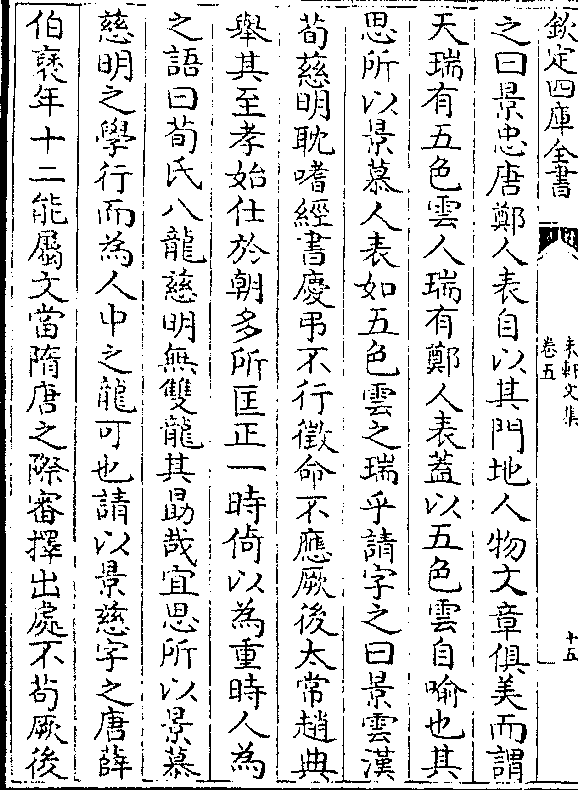 欽定四庫全書
卷五
十五
之曰景忠唐鄭人表自以其門地人物文章俱美而謂
天瑞有五色雲人瑞有鄭人表蓋以五色雲自喻也其
思所以景慕人表如五色雲之瑞乎請字之曰景雲漢
荀慈明耽嗜經書慶弔不行徵命不應厥後太常趙典
舉其至孝始仕於朝多所匡正一時倚以為重時人為
之語曰荀氏八龍慈明無雙龍其勗哉宜思所以景慕
慈明之學行而為人中之龍可也請以景慈字之唐薛
伯襃年十二能屬文當隋唐之際審擇出處不茍厥後